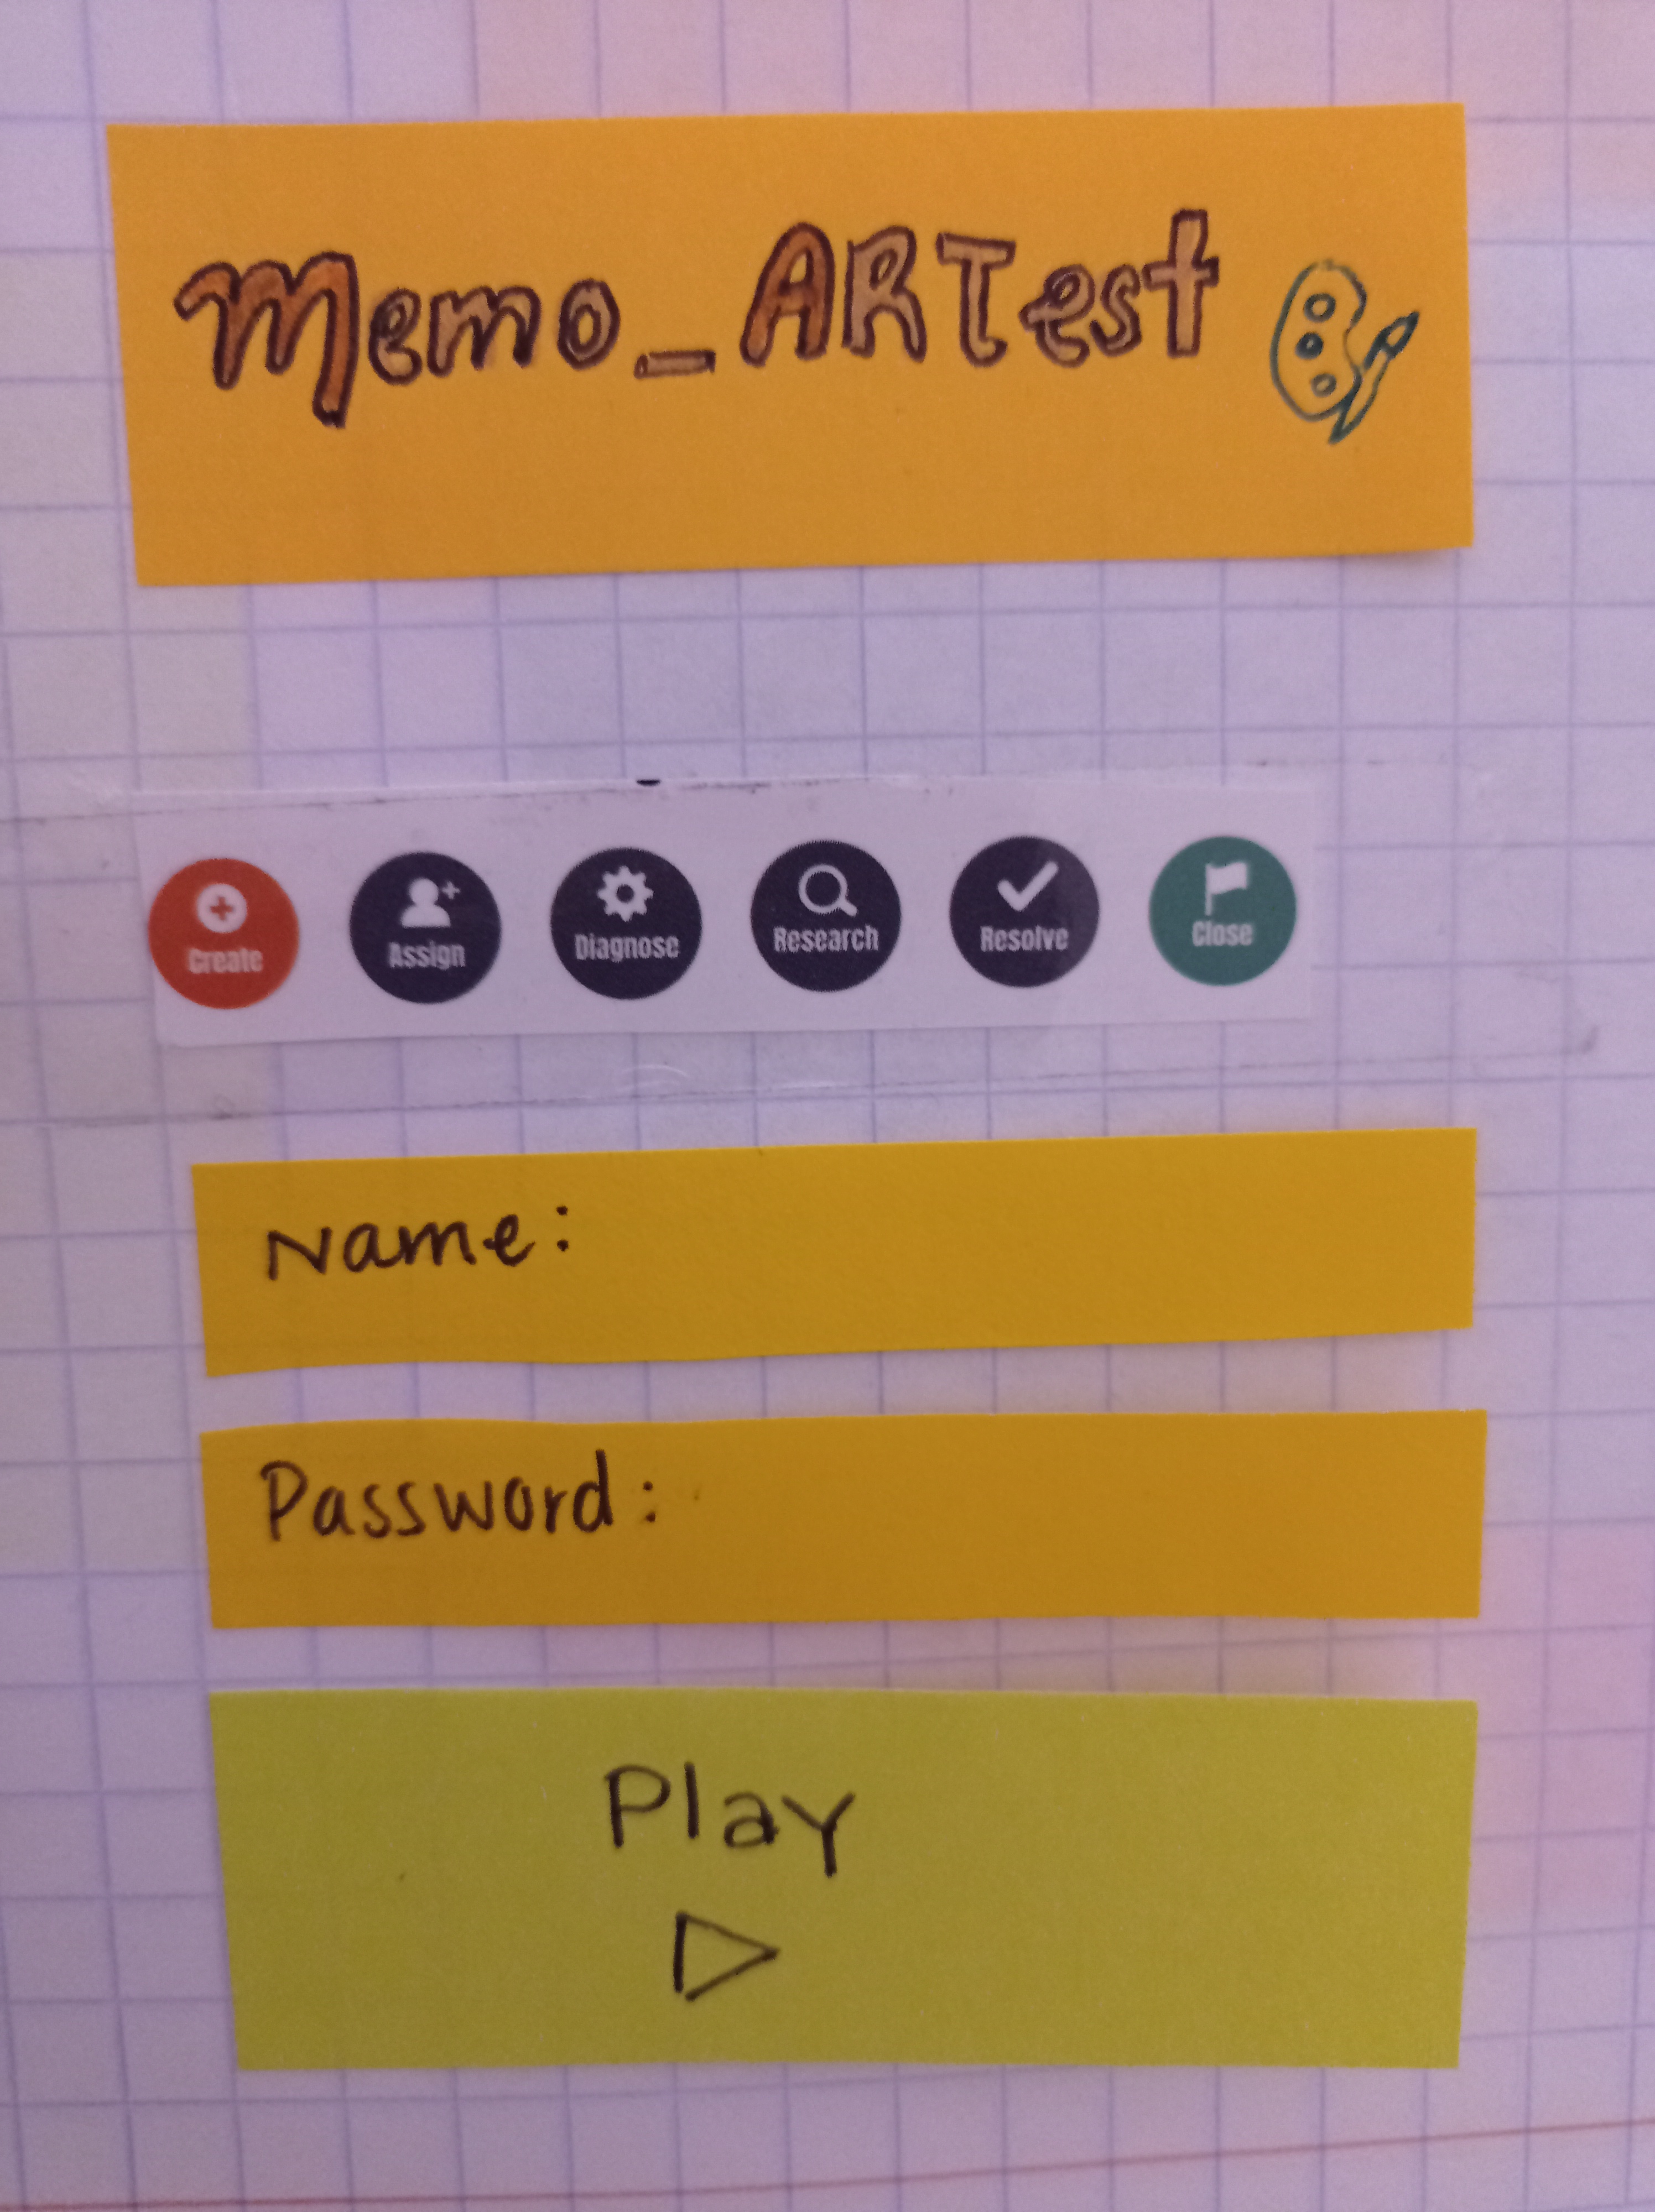 Memo_ARTest
Create Assign Diagnose Research Resolve Close
Name:
Password:
Play